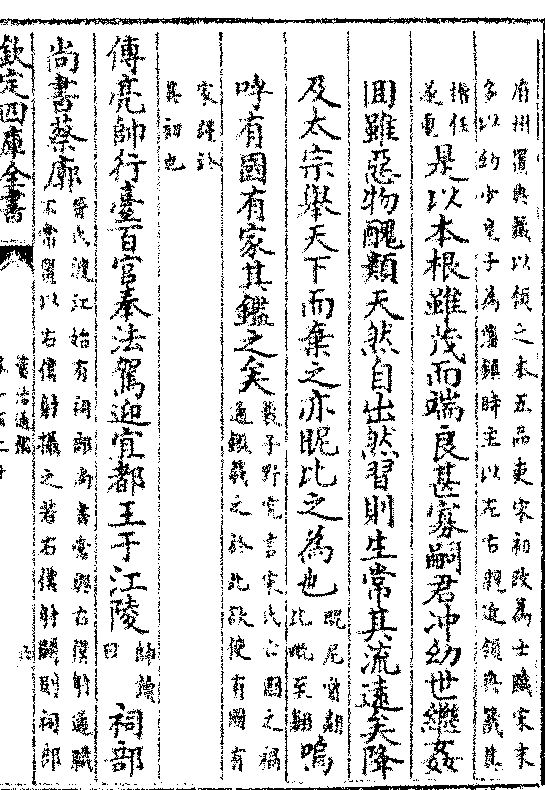 府州置典籖以領之本五品吏宋初改為士職宋末
多以幼少皇子為藩鎮時主以左右親近領典籖其
權任
遂重
是以本根雖茂而端良甚寡嗣君冲幼世繼姦
囬雖惡物醜類天然自出然習則生常其流遠矣降
及太宗舉天下而棄之亦昵比之為也
昵尼質翻
比毗至翻
嗚
呼有國有家其鑑之矣
裴子野究言宋氏亡國之禍
通鑑載之於此欲使有國有
家謹於
其初也
傅亮帥行臺百官奉法駕迎宜都王于江陵
帥讀
曰
祠部
尚書蔡廓
晉氏渡江始有祠部尚書常與右僕射通職
不常置以右僕射攝之若右僕射闕則祠部
欽定四庫全書
資治通鑑
卷一百二十